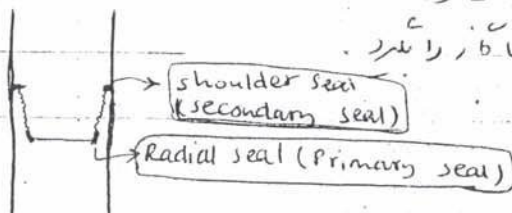 گاز را بگیرد .
shoulder seal
(secondary seal)
Radial seal (Primary seal)